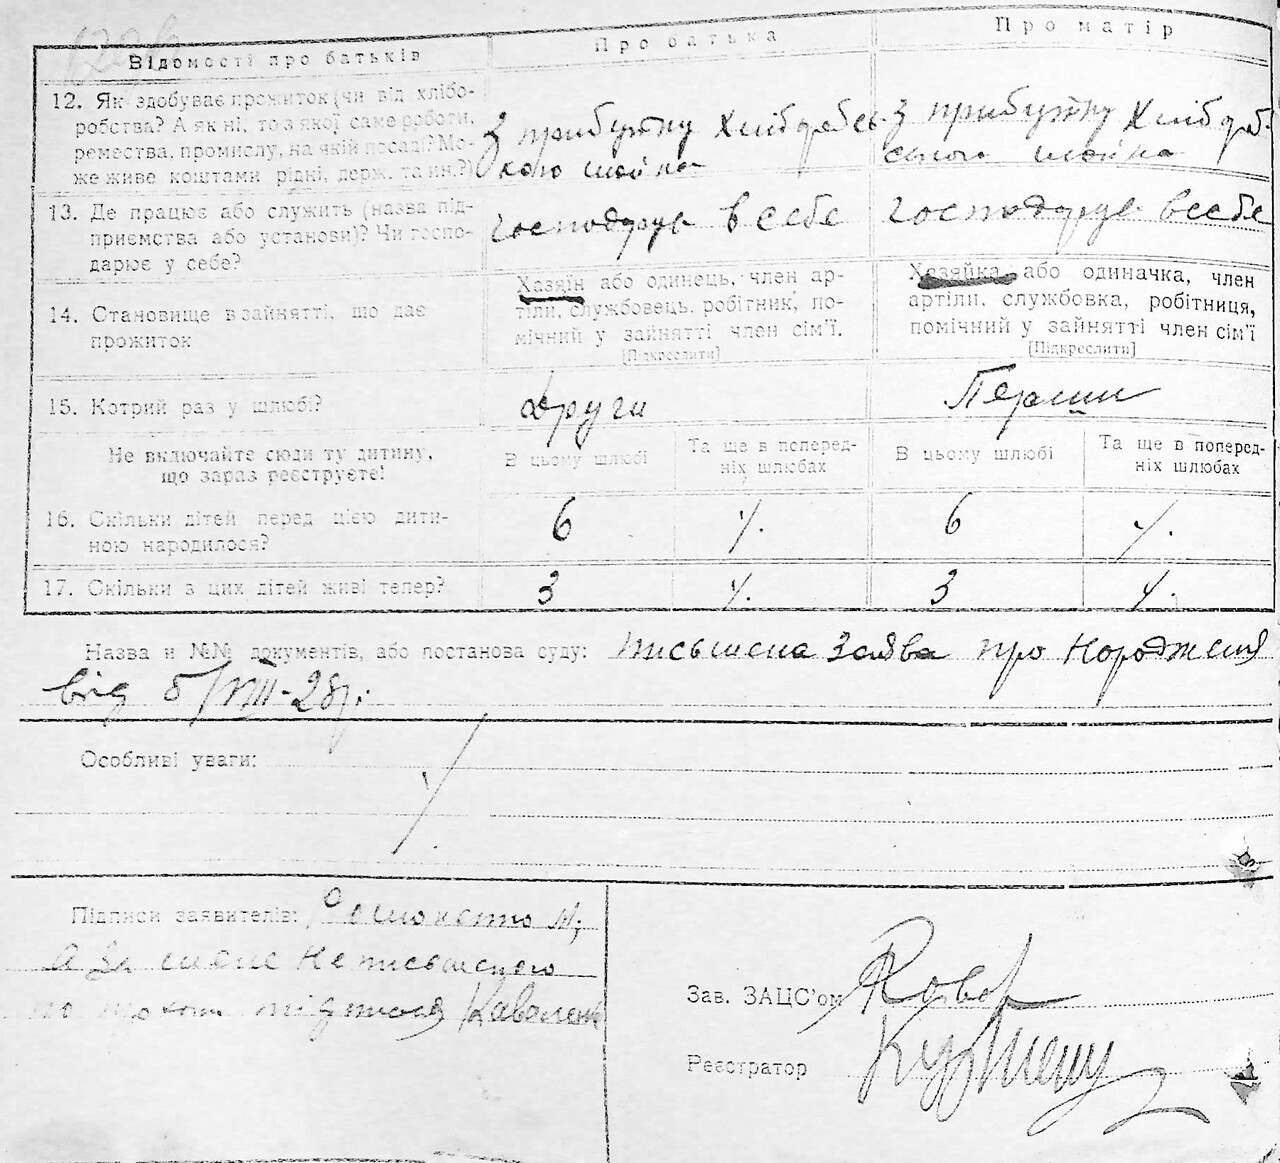 Відомості про батьків
Про батька
Про матір
12. Як здобуває прожиток (чи від хлібо-
робства? А як ні, то з якої саме роботи,
ремества, промислу, на якій посаді? Мо-
же живе коштами рідні, держ. та ин.?)
З прибутку Хліборобсь-
кого
З прибутку Хлібороб.
ського
13. Де працює або служить (назва під-
приємства або установи)? Чи госпо-
дарює у себе?
господарує в себе
господарує в себе
14. Становище в зайнятті, що дає
прожиток
Хазяїн або одинець, член ар-
тіли, службовець, робітник, по-
мічний у зайнятті член сім'ї.
[Підкреслити]
Хазяйка або одиначка, член
артіли, службовка, робітниця,
помічний у зайнятті член сім'ї
[Підкреслити]
15. Котрий раз у шлюбі?
Други
Перший
Не включайте сюди ту дитину,
що зараз реєструєте!
В цьому шлюбі
Та ще в поперед-
ніх шлюбах
В цьому шлюбі
Та ще в поперед-
ніх шлюбах
16. Скільки дітей перед цією дити-
ною народилося?
6
6
17. Скільки з цих дітей живі тепер?
3
3
Назва и №№ документів, або постанова суду: письмена Заява про народження
від 5/VIII-28р.
Особливі уваги:
Підписи заявителів:
А За мене неписьменого
по прохан підписав Коваленк
Зав. ЗАЦС'ом
Реєстратор